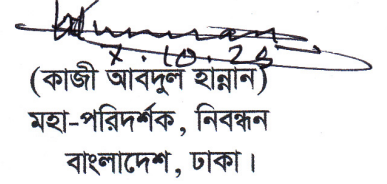 (কাজী আবদুল হান্নান)
মহা-পরিদর্শক, নিবন্ধন
বাংলাদেশ, ঢাকা।